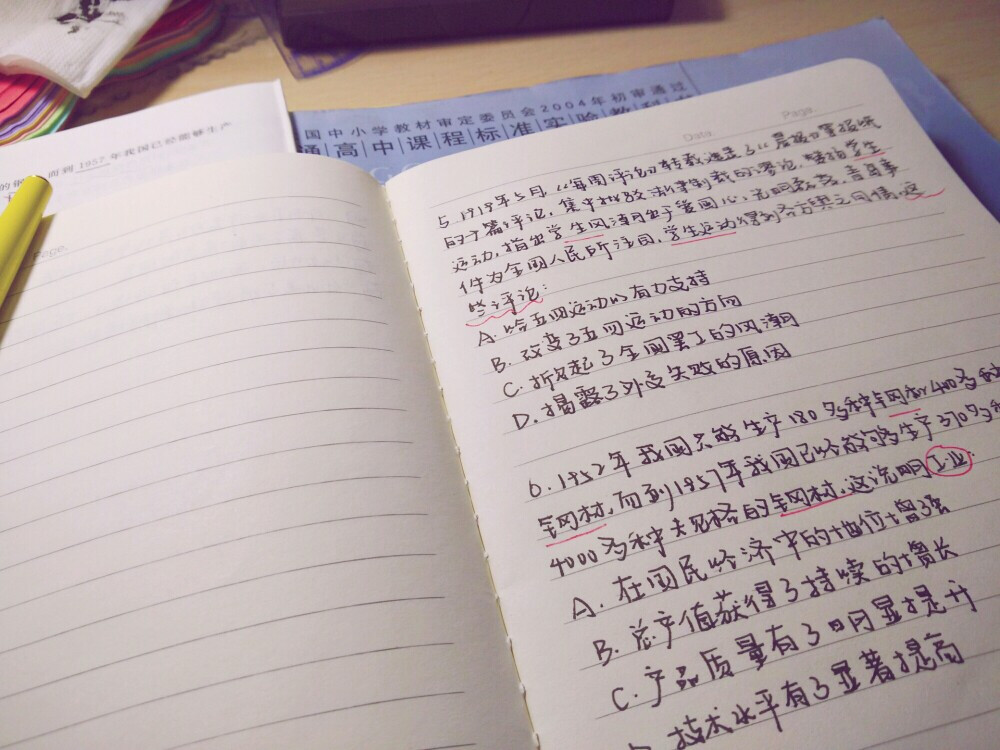 国中小学教材审定委员会2004年初审通过
通高中课程标准实验教科
而到1957年我国已经能够生产
的钢
Page.
Date. Page.
5.1919年5月,《每周评论》转载选录了《晨报》等报纸
的十篇评论,集中批驳制裁的谬论,学生
运动,指出学生风潮出于爱国心,青岛事
件为全国人民所注目,学生运动得到各方舆论同情,这
些评论:
A.给五四运动以有力支持
B.改变了五四运动的方向
C.掀起了全国罢工的风潮
D.揭露了外交失败的原因
6.1952年我国只能生产180多种钢和400多种
钢材,而到1957年我国已经能够生产370多种
4000多种规格的钢材,这说明工业:
A.在国民经济中的地位增强
B.总产值获得了持续的增长
C.产品质量有了明显提升
技术水平有了显著提高